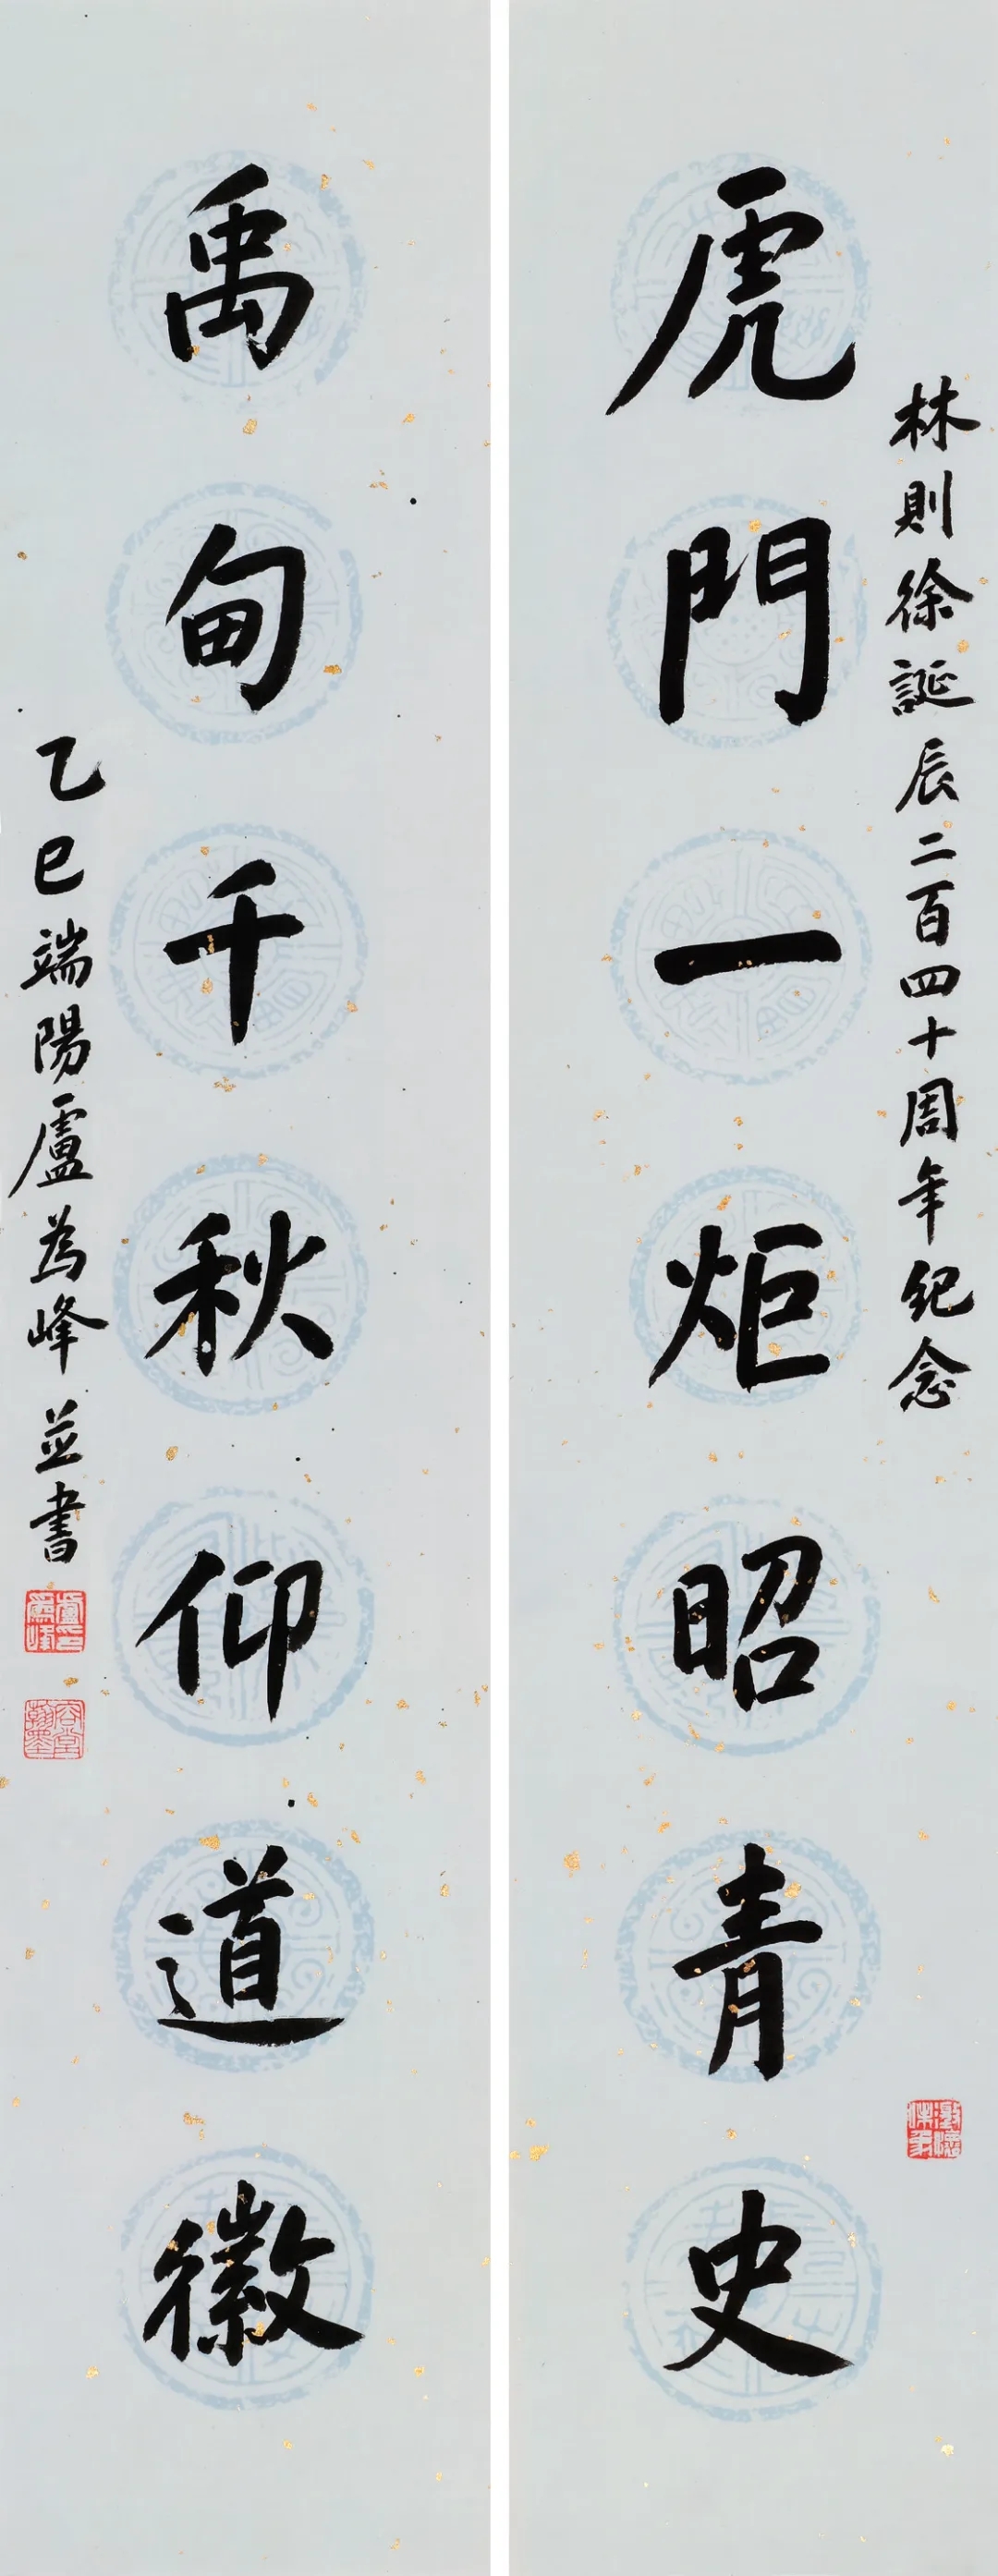 林則徐誕辰二百四十周年纪念
虎門一炬昭青史
禹甸千秋仰道徽
乙巳端陽盧為峰並書
盧為峰印